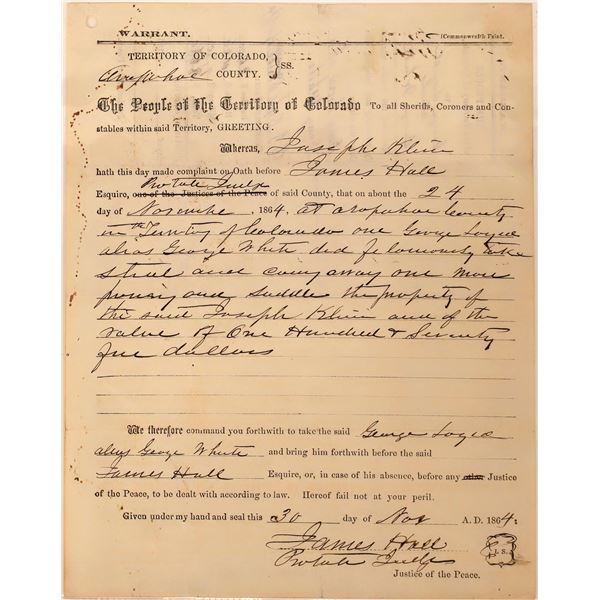 WARRANT. (Commonwealth Print.
TERRITORY OF COLORADO, } SS.
Arapahoe COUNTY.
The People of the Territory of Colorado To all Sheriffs, Coroners and Con-
stables within said Territory, GREETING.
Whereas, Josephe Klein
hath this day made complaint on Oath before James Hall
Probate Judge
Esquire, one of the Justices of the Peace of said County, that on about the 24
day of Novembe 1864. at arapahoe County
in the Territory of Colorado one George
alias George White did feloniously take
steal and carry away one mare
poney and Saddle the property of
the said Joseph Klein and of the
value of One Hundred & Seventy
five dollars
We therefore command you forthwith to take the said George
alias George White and bring him forthwith before the said
James Hall Esquire, or, in case of his absence, before any other Justice
of the Peace, to be dealt with according to law. Hereof fail not at your peril.
Given under my hand and seal this 30 day of Nov A. D. 1864:
James Hall L. S.
Probate Judge
Justice of the Peace.